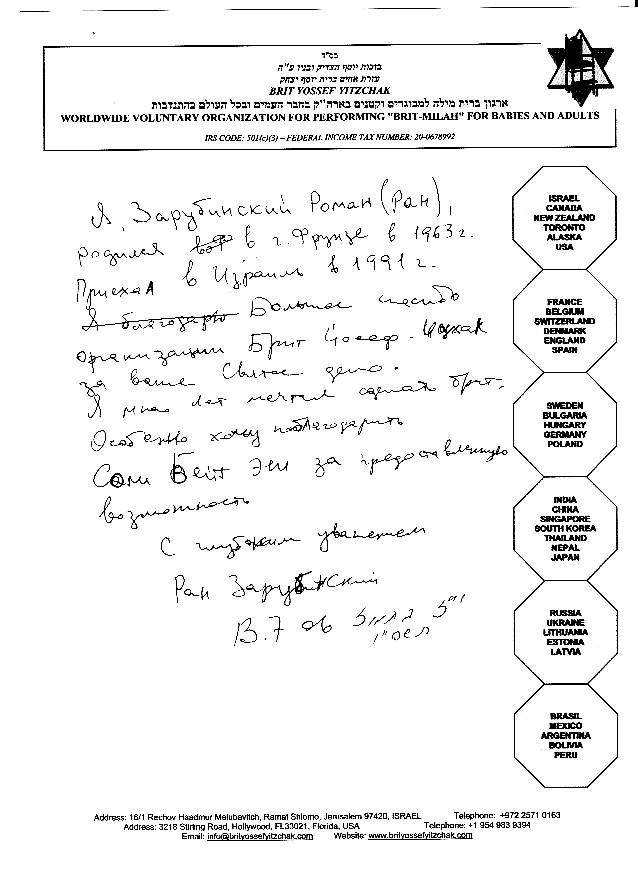 בס"ד
בזכות יוסף הצדיק ובניו ע"ה
עזרת אחים ברית יוסף יצחק
BRIT YOSSEF YITZCHAK
ארגון ברית מילה למבוגרים וקטנים בארה"ק בחבר העמים ובכל העולם בהתנדבות
WORLDWIDE VOLUNTARY ORGANIZATION FOR PERFORMING "BRIT-MILAH" FOR BABIES AND ADULTS
IRS CODE: 501(c)(3) – FEDERAL INCOME TAX NUMBER: 20-0678992
Я, Зарубинский Роман (Ран),
родился в г. Фрунзе в 1963 г.
Приехал в Израиль в 1991 г.
Я благодарю Большое спасибо
организации Брит Йосеф-Ицхак
за ваше Святое дело.
Я много лет мечтал сделать брит.
Особенно хочу поблагодарить
Соли Бейт Эли за предоставленную
возможность
С глубоким уважением
Ран Зарубинский
ISRAEL
CANADA
NEW ZEALAND
TORONTO
ALASKA
USA
FRANCE
BELGIUM
SWITZERLAND
DENMARK
ENGLAND
SPAIN
SWEDEN
BULGARIA
HUNGARY
GERMANY
POLAND
INDIA
CHINA
SINGAPORE
SOUTH KOREA
THAILAND
NEPAL
JAPAN
RUSSIA
UKRAINE
LITHUANIA
ESTONIA
LATVIA
BRASIL
MEXICO
ARGENTINA
BOLIVIA
PERU
Address: 16/1 Rechov Haadmur Melubavitch, Ramat Shlomo, Jerusalem 97420, ISRAEL Telephone: +972 2571 0163
Address: 3218 Stirling Road, Hollywood, FL33021, Florida, USA Telephone: +1 954 983 9394
Email: info@brityossefyitzchak.com Website: www.brityossefyitzchak.com